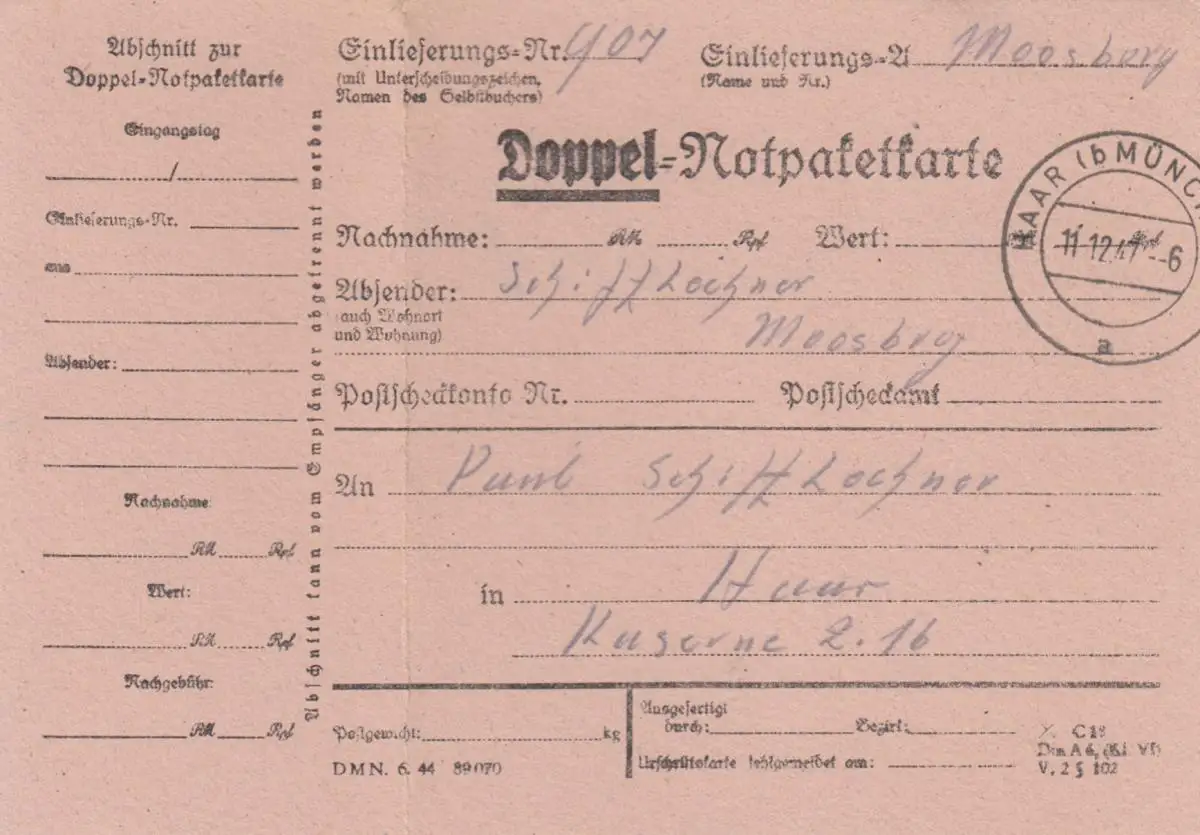 Abschnitt zur
Doppel-Notpaketkarte
Eingangstag
/
Einlieferungs-Nr.
aus
Absender:
Nachnahme:
RM Rpf
Wert:
RM Rpf
Nachgebühr:
RM Rpf
Abschnitt kann vom Empfänger abgetrennt werden
Einlieferungs-Nr. 407
(mit Unterscheidungszeichen,
Namen des Selbstbuchers)
Einlieferungs-A Moosburg
(Name und Nr.)
Doppel-Notpaketkarte
HAAR (b MÜNC
11 12 47 -6
a
Nachnahme: RM Rpf Wert: RM
Absender: Schifflechner
(auch Wohnort
und Wohnung)
Moosburg
Postscheckkonto Nr. Postscheckamt
An Paul Schifflechner
in Haar
Kaserne Z. 16
Postgewicht: kg
DMN. 6. 44 89070
Ausgefertigt
durch: Bezirk:
Urschriftskarte fehlgemeldet am:
C 18
Din A 6, (Kl. VI)
V, 2 § 102